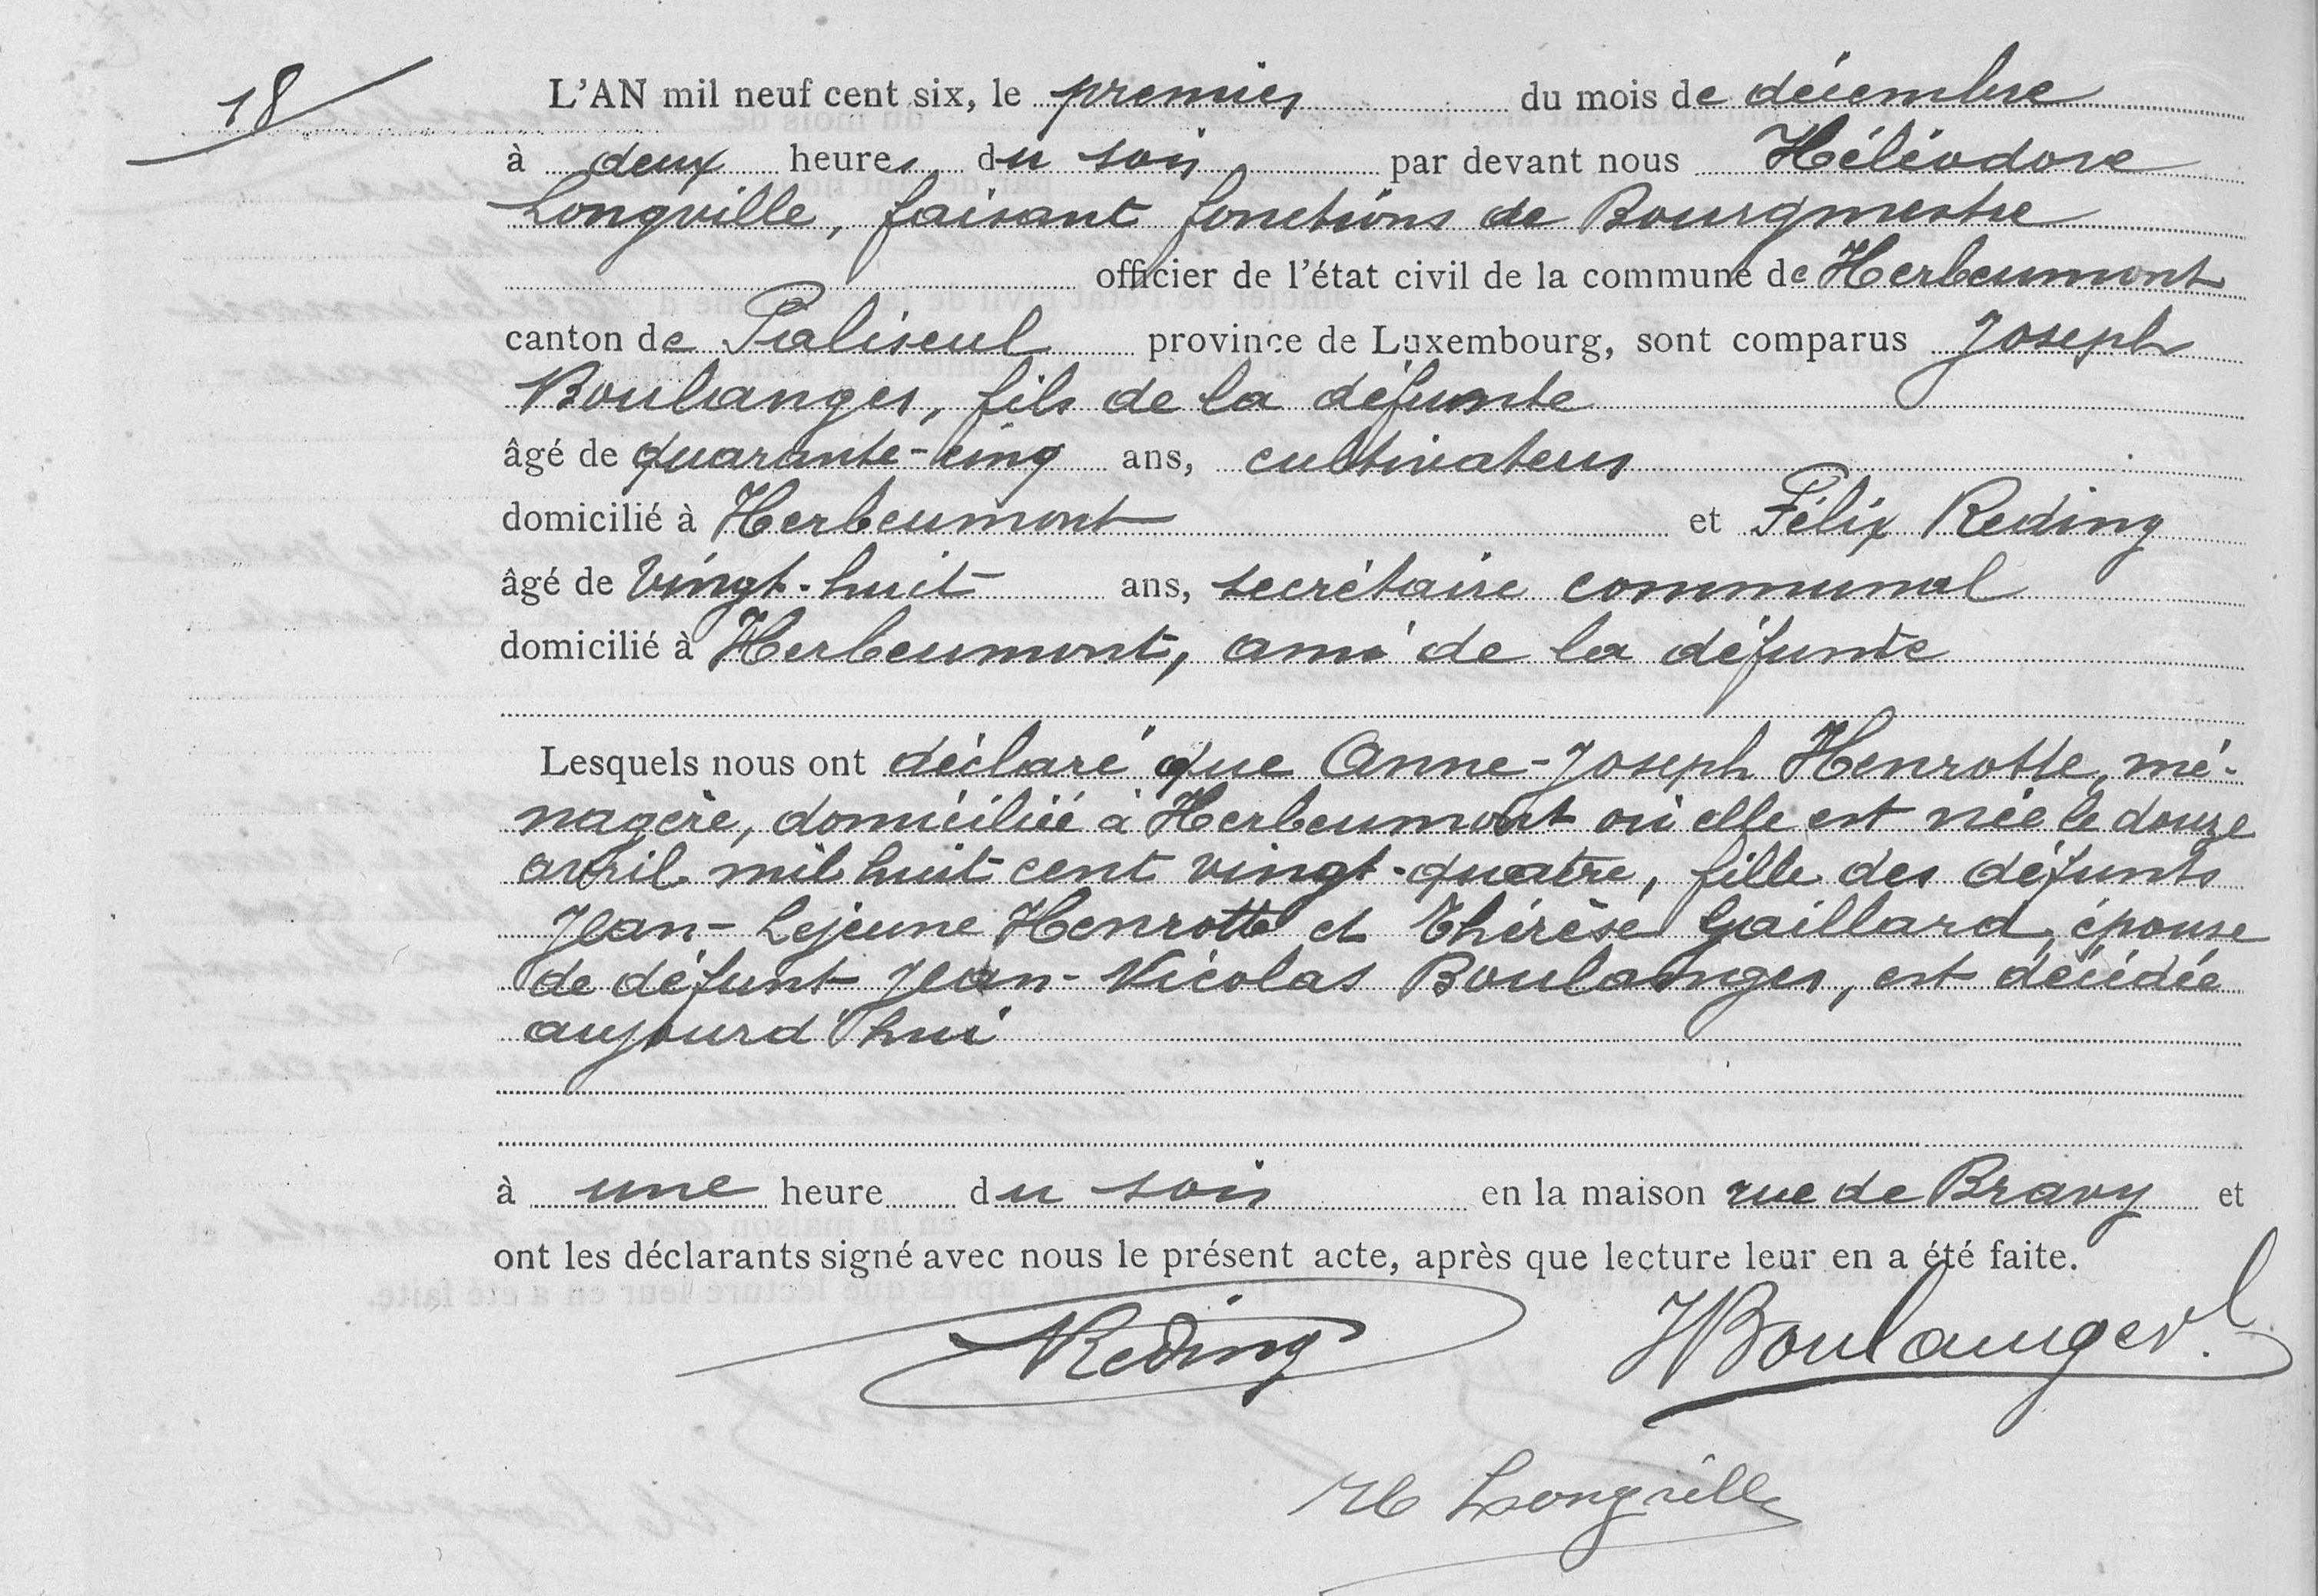 18/
L'AN mil neuf cent six, le premier du mois de décembre
à deux heures du soir par devant nous Héliodore
Longville, faisant fonctions de Bourgmestre
officier de l'état civil de la commune de Herbeumont
canton de Paliseul province de Luxembourg, sont comparus Joseph
Boulanger, fils de la défunte
âgé de quarante-cinq ans, cultivateur
domicilié à Herbeumont et Félix Reding
âgé de vingt-huit ans, secrétaire communal
domicilié à Herbeumont, ami de la défunte
Lesquels nous ont déclaré que Anne-Joseph Henrotte, mé-
nagère, domiciliée à Herbeumont où elle est née le douze
avril mil huit cent vingt-quatre, fille des défunts
Jean-Lejeune Henrotte et Thérèse Gaillard, épouse
de défunt Jean-Nicolas Boulanger, est décédée
aujourd'hui
à une heure du soir en la maison rue de Bravy et
ont les déclarants signé avec nous le présent acte, après que lecture leur en a été faite.
Reding JBoulanger.
H Longville